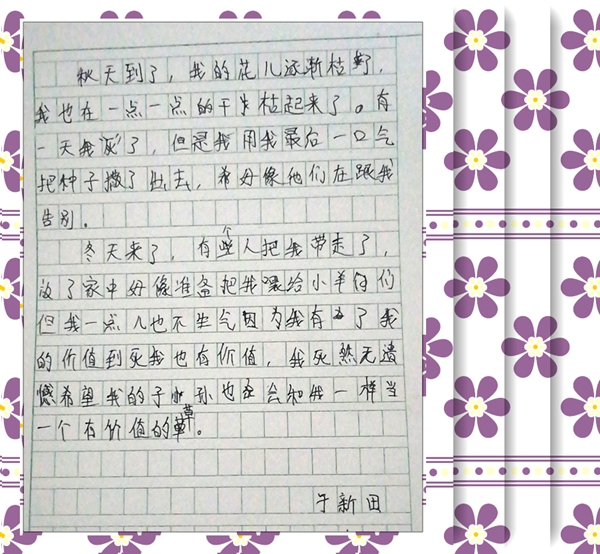 秋天到了，我的花儿逐渐枯萎，
我也在一点一点的干枯起来了。有
一天我死了，但是我用我最后一口气
把种子撒了出去，希好像他们在跟我
告别。
冬天来了，有个人把我带走了，
放了家中好像准备把我喂给小羊们
但我一点儿也不生气因为我有了我
的价值到死我也有价值，我死然无遗
憾希望我的子孙也会和我一样当
一个有价值的草。
于新田